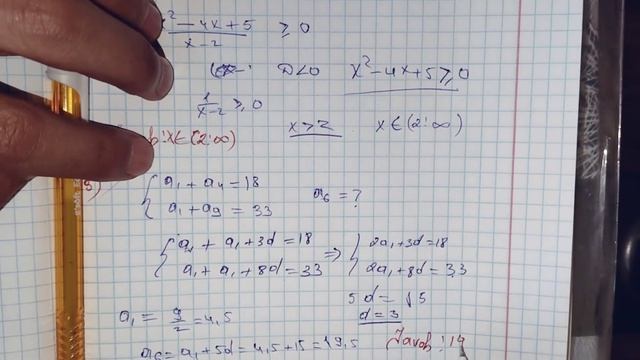 x² - 4x + 5 / x - 2 ≥ 0
D<0 x² - 4x + 5 ≥ 0
1 / x - 2 ≥ 0
x > 2 x ∈ (2; ∞)
b: x ∈ (2; ∞)
{ a₁ + a₄ = 18
a₁ + a₉ = 33
a₆ = ?
{ a₁ + a₁ + 3d = 18 ⇒ { 2a₁ + 3d = 18
a₁ + a₁ + 8d = 33 2a₁ + 8d = 33
5d = 15
d = 3
a₁ = 9/2 = 4,5
a₆ = a₁ + 5d = 4,5 + 15 = 19,5
Javob: 19